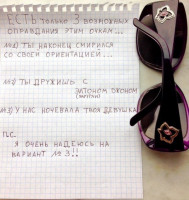 ЕСТЬ ТОЛЬКО 3 ВОЗМОЖНЫХ
ОПРАВДАНИЯ ЭТИМ ОЧКАМ...
№1) ТЫ НАКОНЕЦ СМИРИЛСЯ
СО СВОЕЙ ОРИЕНТАЦИЕЙ...
№2) ТЫ ДРУЖИШЬ С
ЭЛТОНОМ ДЖОНОМ
№3) У НАС НОЧЕВАЛА ТВОЯ ДЕВУШКА
ПС.
Я ОЧЕНЬ НАДЕЮСЬ НА
ВАРИАНТ №3!!